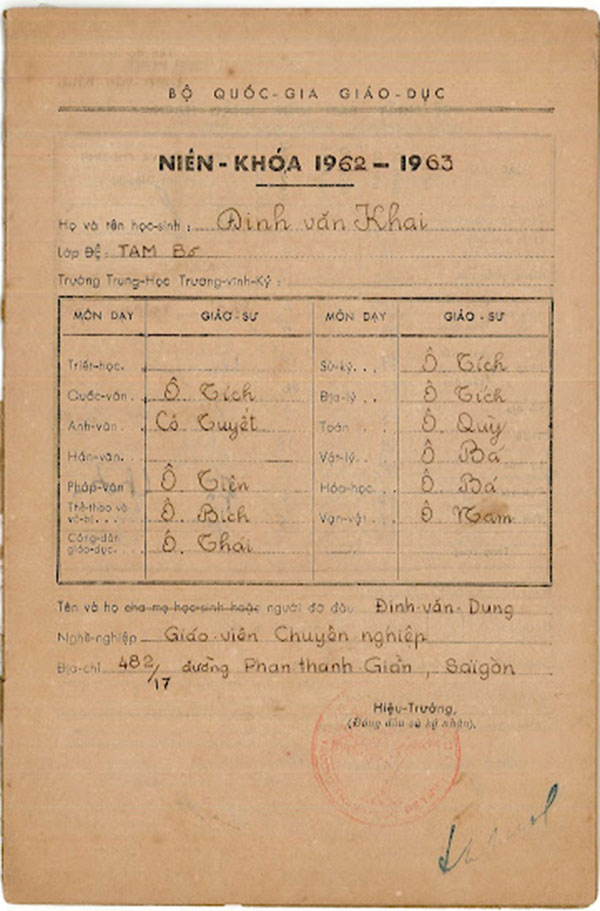 BỘ QUỐC-GIA GIÁO-DỤC
NIÊN-KHÓA 1962-1963
Họ và tên học-sinh: Đinh văn Khai
Lớp ĐỆ: TAM B5
Trường Trung-Học Trương-vĩnh-Ký:
MÔN DẠY GIÁO-SƯ MÔN DẠY GIÁO-SƯ
Triết-học. Sử-ký. Ô Tích
Quốc-văn. Ô Tích Địa-lý. Ô Tích
Anh-văn. Cô Tuyết Toán Ô Quỳ
Hán-văn. Vật-lý. Ô Bá
Pháp-văn Ô Tiên Hóa-học. Ô Bá
Thể-thao và Ô Bích Vạn-vật. Ô Nam
võ-bị.
Công-dân Ô. Thái
giáo-dục.
Tên và họ cha mẹ học-sinh hoặc người đỡ đầu Đinh-văn-Dung
Nghề-nghiệp Giáo viên Chuyên nghiệp
Địa-chỉ 482/17 đường Phan thanh Giản, Saigòn
Hiệu-Trưởng,
(Đóng dấu và ký nhận).